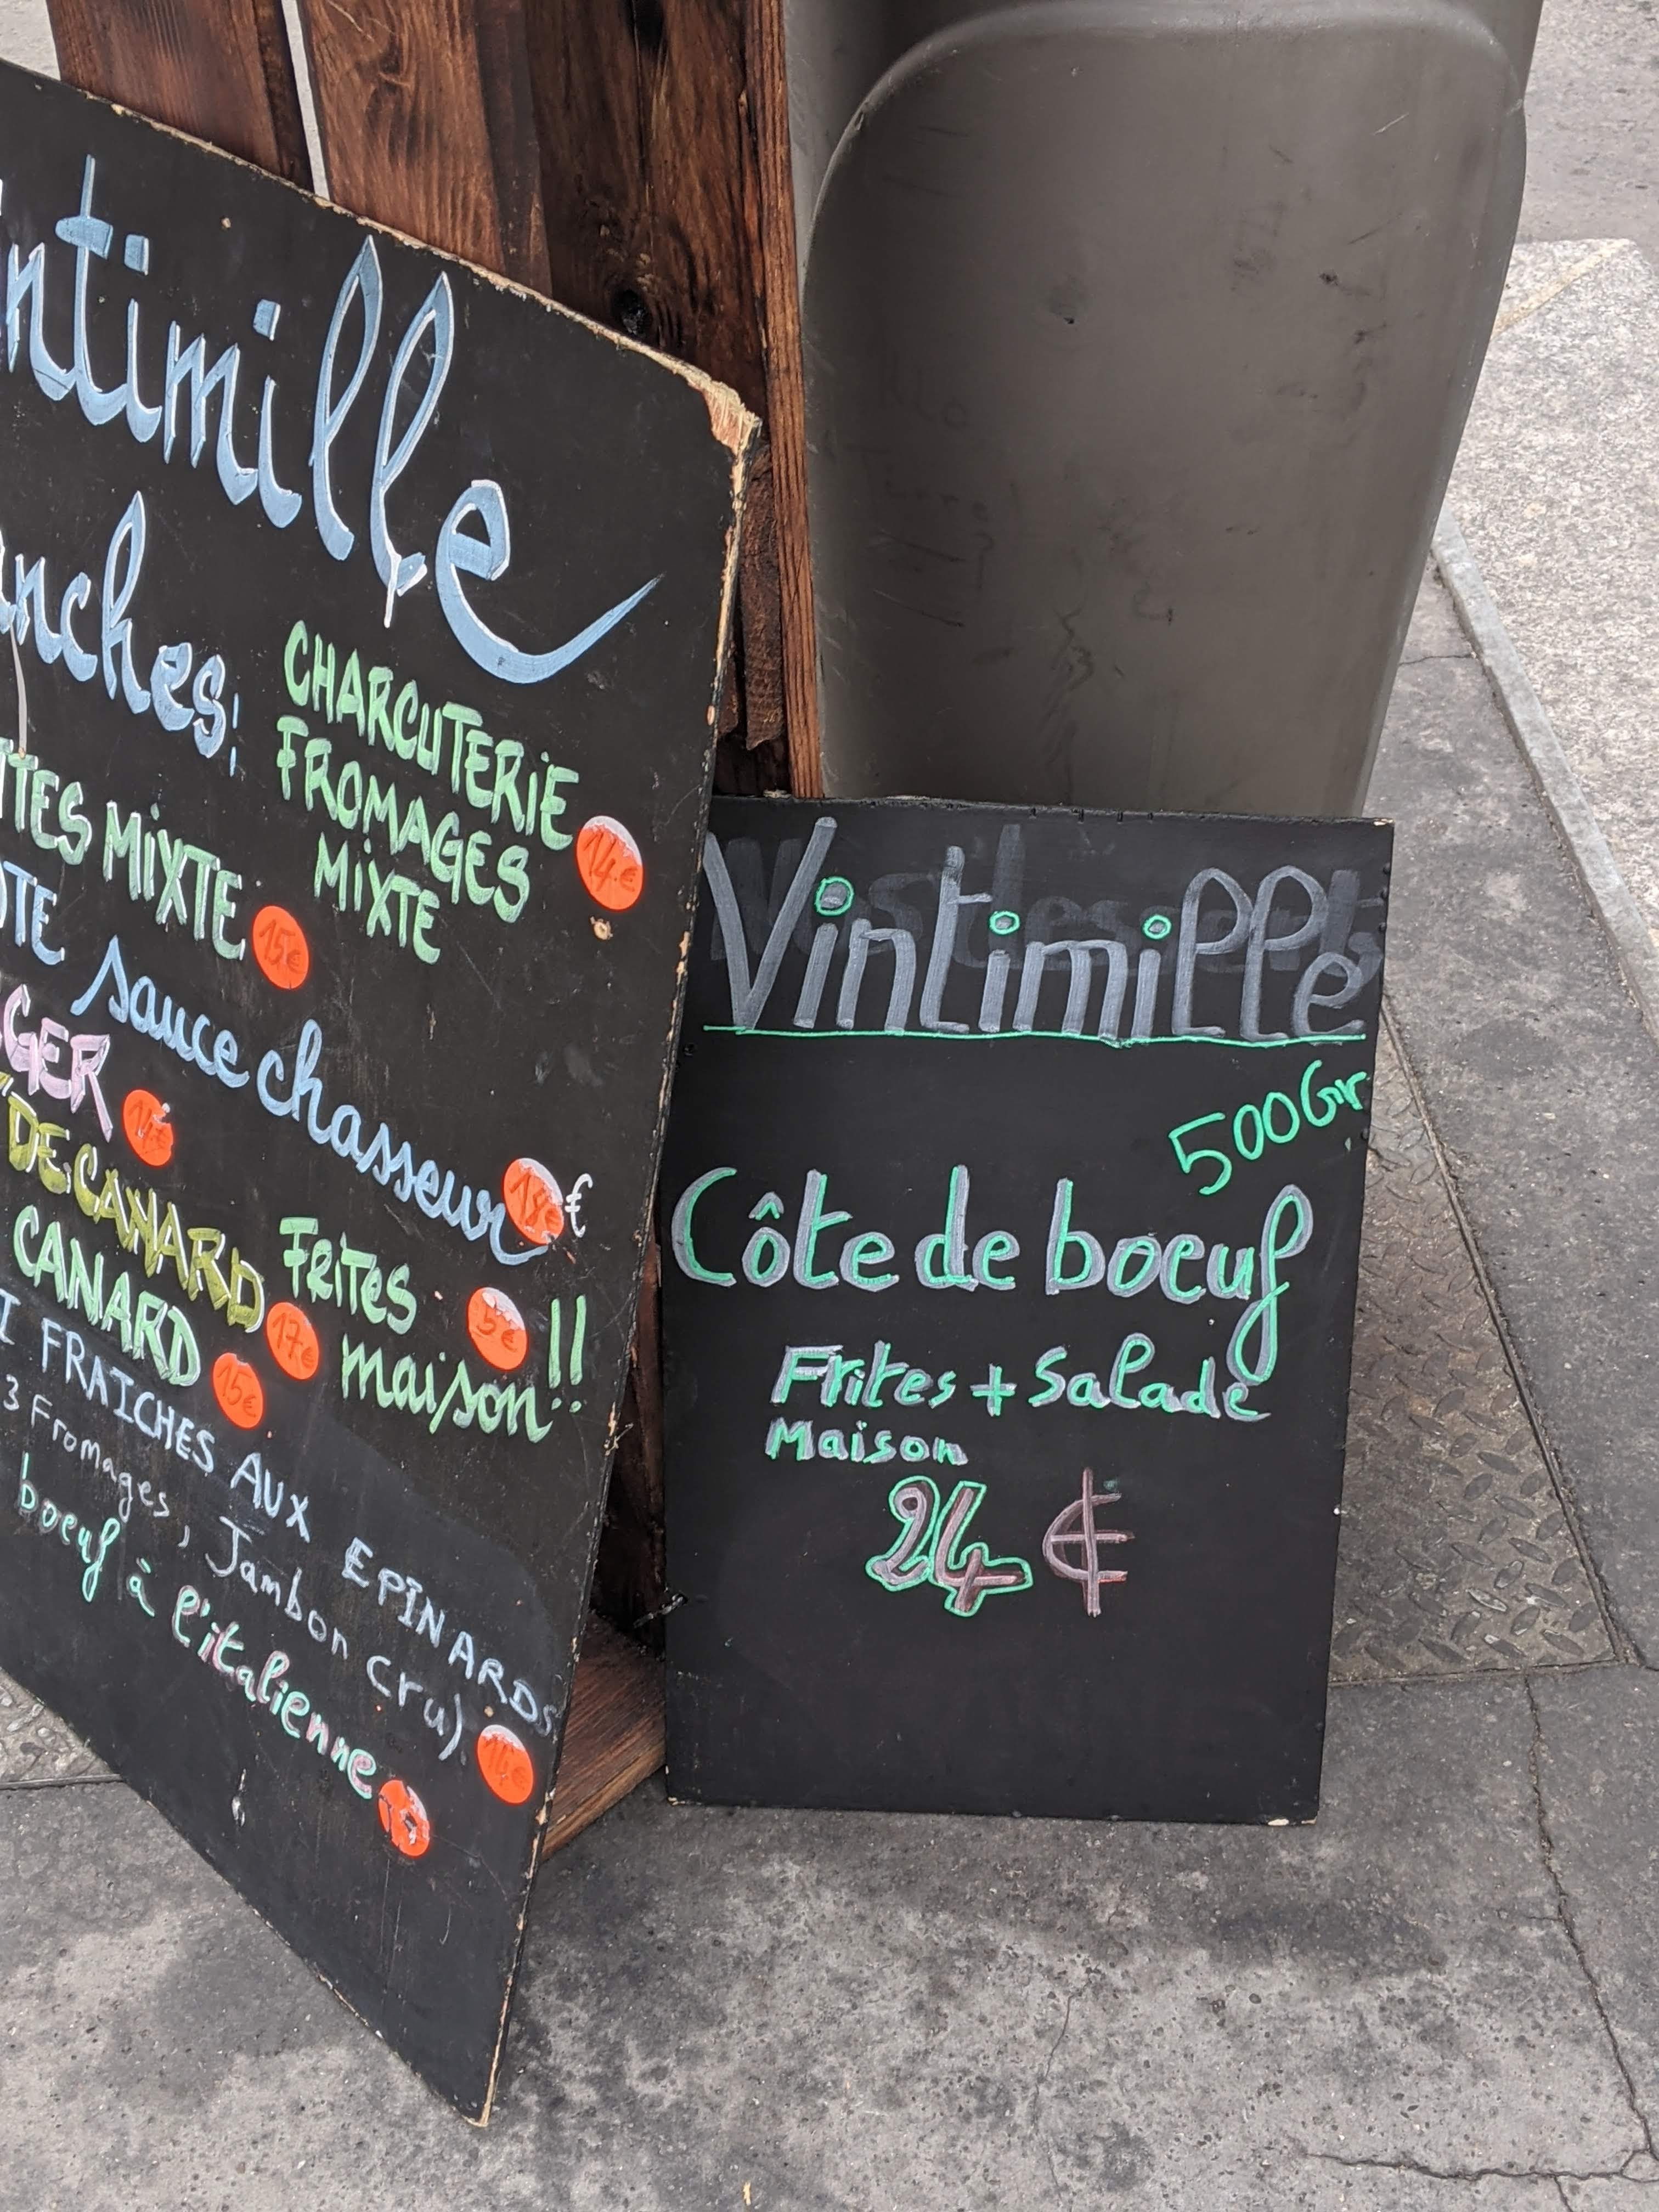 ntimille
anches:
CHARCUTERIE
FROMAGES
MIXTE
14€
TTES MIXTE 15€
OTE sauce chasseur €
GER
DE CANARD 17€
CANARD 15€
Frites 5€
maison!!
I FRAICHES AUX EPINARDS
3 Fromages, Jambon cru)
boeuf à l'italienne
Vintimille
500Gr
Côte de boeuf
Frites + Salade
Maison
24 €